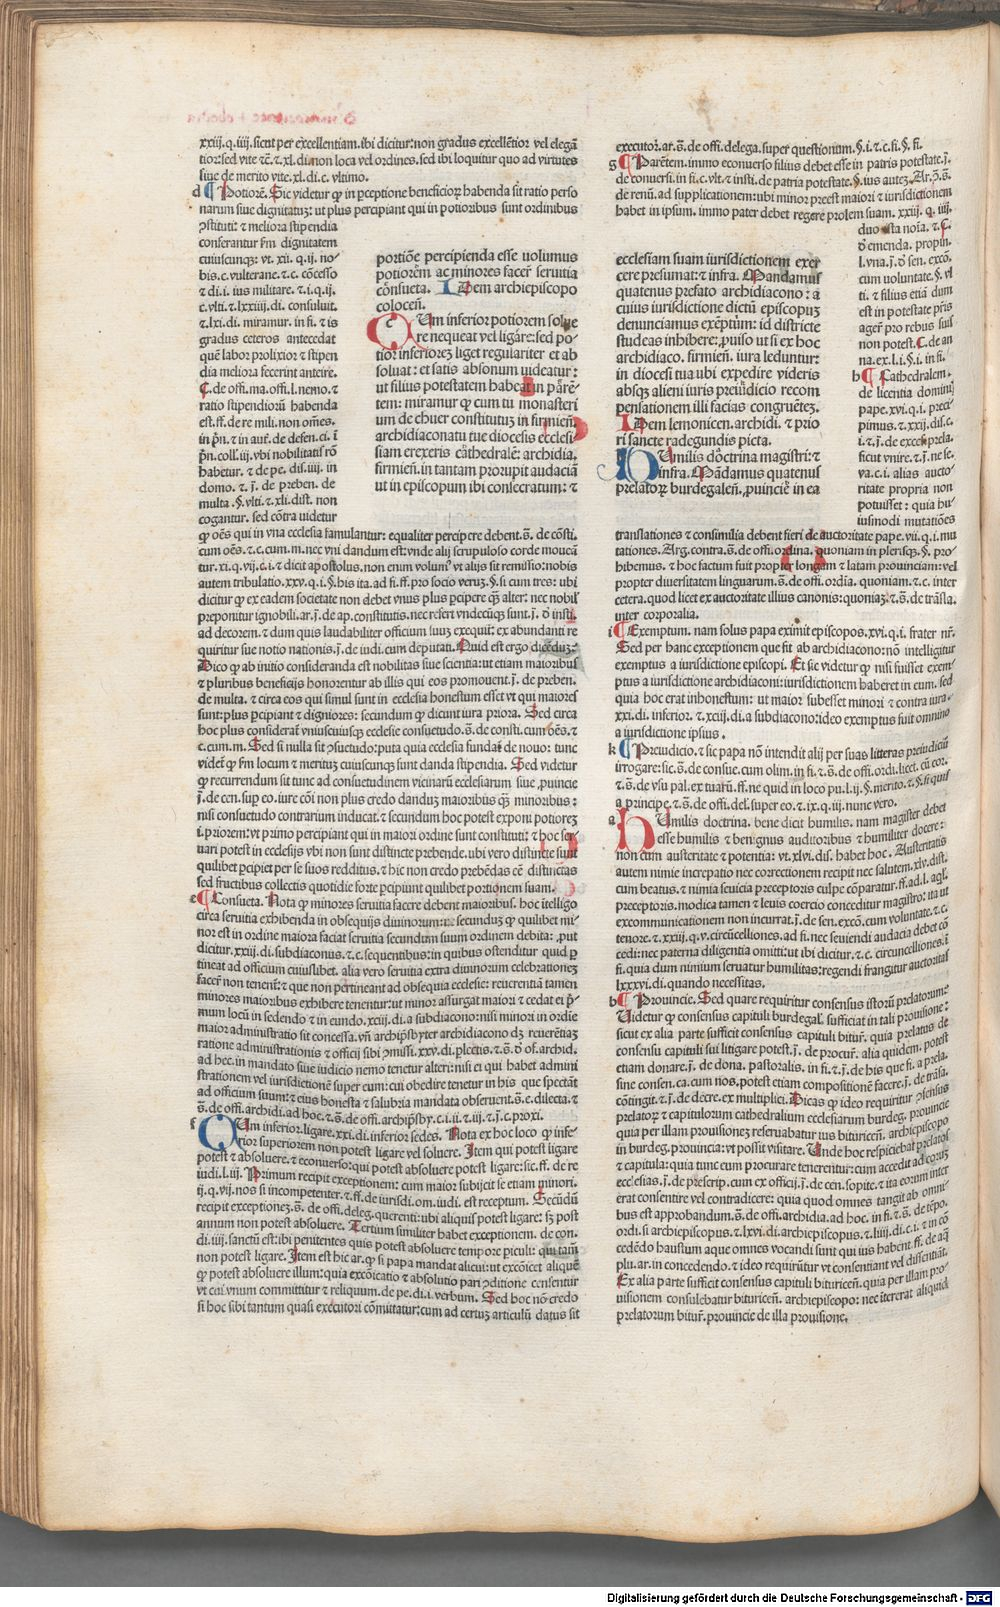 xxiij.q.iiij.sicut per excellentiam.ibi dicitur:non gradus excellētior vel elegā
tior:sed vite ⁊c̄.⁊.xl.di.non loca vel ordines.sed ibi loquitur quo ad virtutes
siue de merito vite.xl.di.c. vltimo.
d ¶ Potiorē. Sic videtur ꝙ in pceptione beneficioꝝ habenda sit ratio perso
narum siue dignitatuꝫ: ut plus percipiant qui in potioribus sunt ordinibus
ꝯstituti: ⁊ meliora stipendia
conserantur fm dignitatem
cuiuscunqꝫ: vt. xii. q. ij. no-
bis.c. vulterane.⁊.c. cōcesso
⁊ di.i. ius militare. ⁊.i.q.ij.
c.vlti.⁊.lxxiij.di. consuluit.
⁊.lxi.di. miramur. in fi. ⁊ is
gradus ceteros antecedat
quē labor prolixior ⁊ stipen
dia meliora fecerint anteire.
C. de offi.ma.offi.l.nemo.⁊
ratio stipendioꝝ habenda
est.ff.de re mili. non omēs.
in pn. ⁊ in aut. de defen.ci. ī
pn.coll.iij.vbi nobilitatis rō
habetur. ⁊ de pe. dis.iij. in
domo. ⁊. j. de preben. de
multa .§.vlti.⁊.xli.dist. non
cogantur. sed cōtra uidetur
ꝙ oēs qui in vna ecclesia famulantur: equaliter percipere debent.s̄. de cōsti.
cum oēs. ⁊.c.cum.m.nec vni dandum est:vnde alij scrupuloso corde moueā
tur.xi.q.vij.c.i.⁊ dicit apostolus, non enim volumꝰ vt alijs sit remissio:nobis
autem tribulatio.xxv.q.i.§.his ita.ad fi.ff.pro socio veruꝫ.§.si cum tres: ubi
dicitur ꝙ ex eadem societate non debet vnus plus pcipere q̄ alter: nec nobil
preponitur ignobili.ar.j.de ap.constitutis.nec refert vndecūqꝫ sunt.j. ō insti.
ad decorem.⁊ dum quis laudabiliter officium suuꝫ exequit̄: ex abundanti re
quiritur sue notio nationis.j.de iudi.cum deputati. Quid est ergo dicēduꝫ?
Dico ꝙ ab initio consideranda est nobilitas siue scientia:ut etiam maioribus
⁊ pluribus beneficijs honorentur ab illis qui eos promouent.j. de preben.
de multa. ⁊ circa eos qui simul sunt in ecclesia honestum esset vt qui maiores
sunt:plus pcipiant ⁊ digniores: secundum ꝙ dicunt iura priora. Sed circa
hoc plus considerat̄ vniuscuiusqꝫ ecclesie consuetudo.s̄.de consti.cum oēs.⁊
c.cum.m. Sed si nulla sit ꝯsuetudo:puta quia ecclesia fundat̄ de nouo: tunc
videt̄ ꝙ fm locum ⁊ merituꝫ cuiuscunqꝫ sunt danda stipendia. Sed videtur
ꝙ recurrendum sit tunc ad consuetudinem vicinarū ecclesiarum siue ꝓuincie
j.de cen.sup eo.iure cōi non plus credo danduꝫ maioribus q̄ minoribus :
nisi consuetudo contrarium inducat.⁊ secundum hoc potest exponi potiorez
i.priorem:vt primo percipiant qui in maiori ordine sunt constituti: ⁊ hoc ser
uari potest in ecclesijs vbi non sunt distincte prebende.ubi vero distincte sunt
quilibet pcipiet per se suos redditus.⁊ hic non credo prebēdas cē distinctas
sed fructibus collectis quotidie forte pcipiunt quilibet portionem suam.
e ¶ Consueta. Nota ꝙ minores seruitia facere debent maioribus. hoc ītelligo
circa seruitia exhibenda in obsequijs diuinorum:i.secunduꝫ ꝙ quilibet mi-
nor est in ordine maiora faciat seruitia secundum suum ordinem debita: ꝓut
dicitur.xxiij.di.subdiaconus.⁊.c.sequentibus:in quibus ostenditur quid p
tineat ad officium cuiuslibet. alia vero seruitia extra diuinorum celebrationez
facer̄ non tenent̄:⁊ que non pertineant ad obsequia ecclesie: reuerentiā tamen
minores maioribus exhibere tenentur:ut minor assurgat maiori ⁊ cedat ei p-
mum locū in sedendo ⁊ in eundo.xciij.di.a subdiacono:nisi minori in ordīe
maior administratio sit concessa.vn̄ archipsbyter archidiacono dꝫ reuerētiaꝫ
ratione administrationis ⁊ officij sibi ꝯmissi.xxv.di.plectis.⁊.s̄.ō of.archid.
ad hec.in mandato siue iudicio nemo tenetur alteri:nisi ei qui habet admini
strationem vel iurisdictionē super eum:cui obedire tenetur in his que spectāt
ad officium suum:⁊ eius honesta ⁊ salubria mandata obseruent.s̄.e.dilecta.⁊
s̄.de offi.archidi.ad hoc.⁊.s̄.de offi.archipsby.c.i.ii.⁊.iij.⁊ j.c.proxi.
f QUm inferior.ligare.xxi.di.inferior sedes. Nota ex hoc loco ꝙ infe-
rior superiorem non potest ligare vel soluere. Item qui potest ligare
potest ⁊ absoluere.⁊ econuerso:qui potest absoluere potest ligare:sic.ff.de re
iudi.l.iij. Primum recipit exceptionem: cum maior subijcit se etiam minori.
ij.q.vij.nos si incompetenter.⁊.ff.de iurisdi.om.iudi.est receptum. Secūdū
recipit exceptionez.s̄.de offi.deleg.querenti:ubi aliquis potest ligare: sꝫ post
annum non potest absoluere. Tertium similiter habet exceptionem. de con.
di.iiij.sanctū est:ibi penitentes quis potest absoluere tempore piculi: qui tam
non potest ligare. Item est hic ar.ꝙ si papa mandat alicui:ut excōicet aliquē
ꝙ potest absoluere illum:quia excōicatio ⁊ absolutio pari ꝯditione censentur
vt cui vnum committitur ⁊ reliquum.de pe.di.i.verbum. Sed hoc nō credo
si hoc sibi tantum quasi executori cōmittatur:cum ad certuꝫ articulū datus sit
portiōe percipienda esse uolumus
potiorēm ac minores facer̄ seruitia
cōnsueta. IDem archiepiscopo
colocen̄.
QUm inferior potiorem solue
re nequeat vel ligāre:sed po-
tior inferiorez liget regulariter et ab
soluat: et satis absonum uideatur :
ut filius potestatem habeat in parē-
tem: miramur ꝙ cum tu monasteri
um de chuer constitutuꝫ in firmien̄.
archidiaconatu tue diocesis ecclesi
siam erexeris cāthedralē: archidia.
firmien̄.in tantam prorupit audaciā
ut in episcopum ibi consecratum: ⁊
executor.ar.s̄.de offi.delega.super questionum.§.i.⁊.c.fi.§.fi.
g ¶ Parētem.immo econuerso filius debet esse in patris potestate.j.
de conuersi.in fi.c.vlt.⁊ insti.de patria potestate.§.ius auteꝫ.Ar.ꝯ.s̄.
de renū.ad supplicationem:ubi minor preest maiori ⁊ iurisdictionem
habet in ipsum. immo pater debet regere prolem suam. xxiij. q. iiij.
duo ista noīa. ⁊. C.
ō emenda. propin.
l.vna.j. ō sen. excō.
cum uoluntate.§.vl
ti. ⁊ filius etiā dum
est in potestate pr̄is
ager̄ pro rebus suis
non potest. C. de an
na.ex.l.i.§.i. in fi.
h ¶ Cathedralem.
de licentia dominij
pape.xvi.q.i. preci-
pimus.⁊.xxij.dis.c.
i.⁊.j.de exces.prela.
sicut vnire.⁊.j.ne se.
va.c.i. alias aucto-
ritate propria non
potuisset: quia hu
iusmodi mutatiōes
translationes ⁊ consimilia debent fieri de auctoritate pape.vii.q.i.mu
tationes.Arg.contra.s̄.de offi.ordina.quoniam in plerisqꝫ.§. pro-
hibemus. ⁊ hoc factum fuit propter longam ⁊ latam prouinciam:vel
propter diuersitatem linguarum.s̄.de offi.ordīa. quoniam.⁊.c. inter
cetera.quod licet ex auctoritate illius canonis: quoniaꝫ.⁊.s̄.de trāsla.
inter corporalia.
i ¶ Exemptum. nam solus papa eximit episcopos.xvi.q.i. frater nr̄.
Sed per hanc exceptionem que fit ab archidiacono:nō intelligitur
exemptus a iurisdictione episcopi. Et sic videtur ꝙ nisi fuisset exem-
ptus a iurisdictione archidiaconi:iurisdictionem haberet in eum. sed
quia hoc erat inhonestum: ut maior subesset minori ⁊ contra iura.
xxi.di. inferior. ⁊.xciij.di.a subdiacono:ideo exemptus fuit omnino
a iurisdictione ipsius.
k ¶ Preiudicio.⁊ sic papa nō intendit alij per suas litteras preiudiciū
irrogare:sic.s̄.de consue.cum olim.in fi.⁊.s̄.de offi.ordi.licet.cū cor.
⁊.s̄.de vsu pal.ex tuarū.ff.ne quid in loco pu.l.ij.§.merito.⁊.§.si quis
a principe.⁊.s̄.de offi.del.super eo.⁊.ix.q.iij.nunc vero.
a HUmilis doctrina. bene dicit humilis. nam magister debet
esse humilis ⁊ benignus auditoribus ⁊ humiliter docere:
non cum austeritate ⁊ potentia: vt.xlvi.dis. habet hoc. Austeritatis
autem nimie increpatio nec correctionem recipit nec salutem.xlv.dist.
cum beatus.⁊ nimia seuicia preceptoris culpe cōparatur.ff.ad.l.aql.
preceptoris.modica tamen ⁊ leuis coercio conceditur magistro: ita ut
excommunicationem non incurrat.j.de sen.excō.cum voluntate.⁊.c.
tenore.⁊.xxiij.q.v.circūcelliones.ad fi.nec seuiendi audacia debet cō
cedi:nec paterna diligentia omitti:ut ibi dicitur.⁊.c. circuncelliones.ī
fi.quia dum nimium seruatur humilitas:regendi frangitur auctoritas
lxxxvi.di.quando necessitas.
b ¶ Prouincie. Sed quare requiritur consensus istorū prelatorum?
Uidetur ꝙ consensus capituli burdegal̄. sufficiat in tali prouisione:
sicut ex alia parte sufficit consensus capituli bitur̄. quia prelatus de
consensu capituli sui litigare potest.j. de procur̄. alia quidem. potest
etiam donare.j. de dona. pastoralis. in fi.⁊.j.de his que fi. a prela.
sine consen.ca.cum nos.potest etiam compositionē facere.j. de trāsa.
cōtingit.⁊.j.de decre.ex multiplici. Dicas ꝙ ideo requiritur ꝯsensus
prelatoꝝ ⁊ capitulorum cathedralium ecclesiarum burdeg. prouincie
quia per illam prouisionez reseruabatur ius bituricen̄. archiepiscopo
in burdeg.prouincia:vt possit visitare. Unde hoc respiciebat prelatos
⁊ capitula: quia tunc eum procurare tenerentur: cum accedit ad eoruꝫ
ecclesias.j.de prescrip.cum ex officij.j.de cen.sopite.⁊ ita eorum inter
erat consentire vel contradicere: quia quod omnes tangit ab omni-
bus est approbandum.s̄.de offi.archidia.ad hoc.in fi.⁊.s̄.de tēpo.
ordi.si archiepiscopus.⁊.lxvi.di.archiepiscopus.⁊.liiij.di.c.i.⁊ in cō
cedēdo haustum aque omnes vocandi sunt qui ius habent.ff.de aq̄
plu.ar.in concedendo.⁊ ideo requirūtur vt consentiant vel dissentiāt.
Ex alia parte sufficit consensus capituli bituricen̄.quia per illam pro-
uisionem consulebatur bituricen̄. archiepiscopo: nec itererat aliquid
prelatorum bitur̄.prouincie de illa prouisione.
ecclesiam suam iurisdictionem exer
cere presumat: ⁊ infra. Mandamus
quatenus prefato archidiacono: a
cuius iurisdictione dictū episcopuꝫ
denunciamus exēptum: id districte
studeas inhibere: ꝓuiso ut si ex hoc
archidiaco. firmien̄. iura leduntur:
in diocesi tua ubi expedire videris
absqꝫ alieni iuris preiudicio recom
pensationem illi facias congruētez.
IDem lemonicen. archidi. ⁊ prio
ri sancte radegundis picta.
HUmilis dōctrina magistri: ⁊
infra. Mādamus quatenus
prelatoꝝ burdegalen̄.ꝓuincie in ea
Digitalisierung gefördert durch die Deutsche Forschungsgemeinschaft - DFG